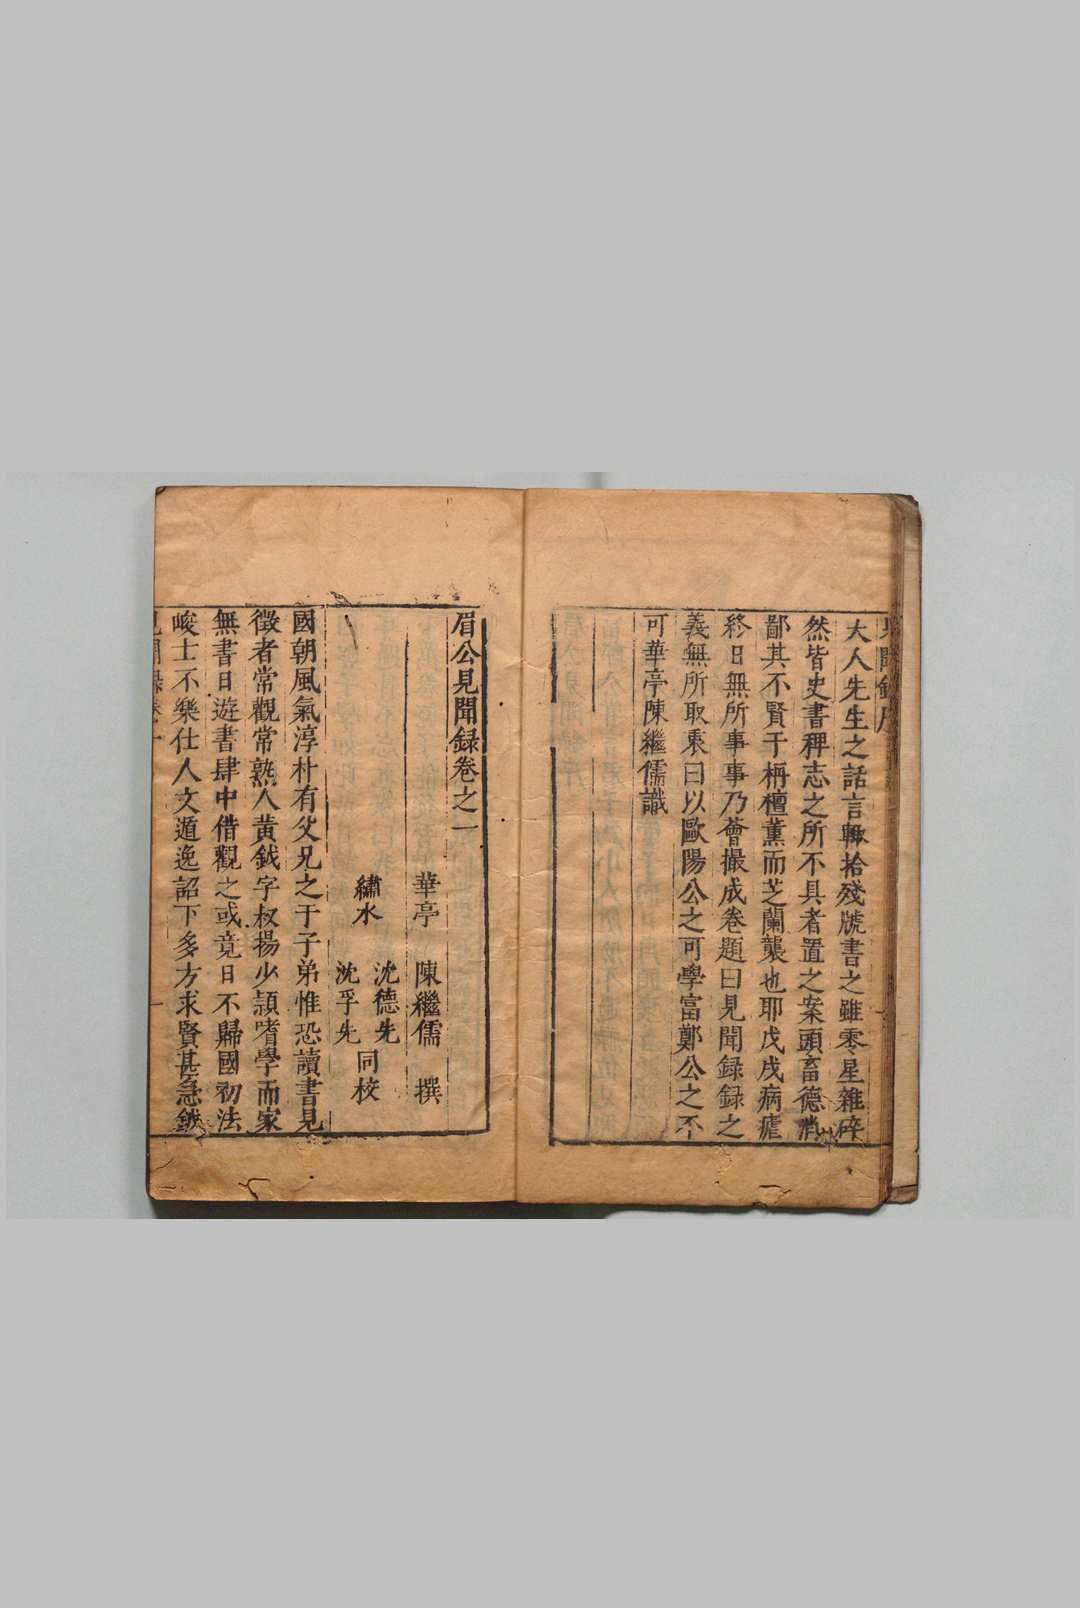 大人先生之話言輙拾殘牘書之雖零星雜碎
然皆史書稗志之所不具者置之案頭畜德消
鄙其不賢于栴檀薰而芝蘭襲也耶戊戌病瘧
終日無所事事乃薈撮成卷題曰見聞録録之
義無所取裹曰以歐陽公之可學富鄭公之不
可華亭陳繼儒識
眉公見聞録卷之一
華亭 陳繼儒 撰
繡水 沈德先
沈孚先 同校
國朝風氣淳朴有父兄之于子弟惟恐讀書見
徵者常觀常熟人黃鉞字叔揚少頴嗜學而家
無書日遊書肆中借觀之或竟日不歸國初法
峻士不樂仕人文遁逸詔下多方求賢甚急鉞